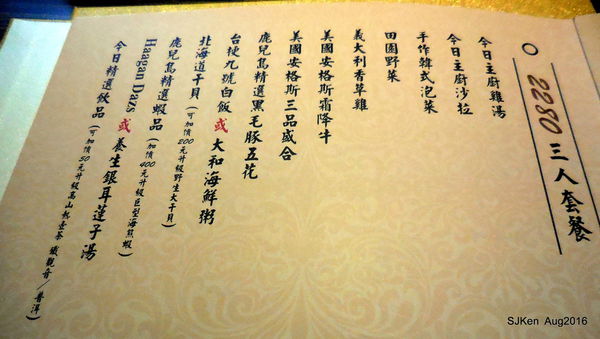 2280 三人套餐
今日主廚雞湯
今日主廚沙拉
手作韓式泡菜
田園野菜
義大利香草雞
美國安格斯霜降牛
美國安格斯三品盛合
鹿兒島精選黑毛豚五花
台梗九號白飯 或 大和海鮮粥
北海道干貝 (可加價200元升級野生大干貝)
鹿兒島精選蝦品 (加價400元升級巨型海熊蝦)
Haagan Dazs 或 養生銀耳蓮子湯
今日精選飲品 (可加價50元升級高山熱壺茶 鐵觀音/普洱)
SJKen Aug2016